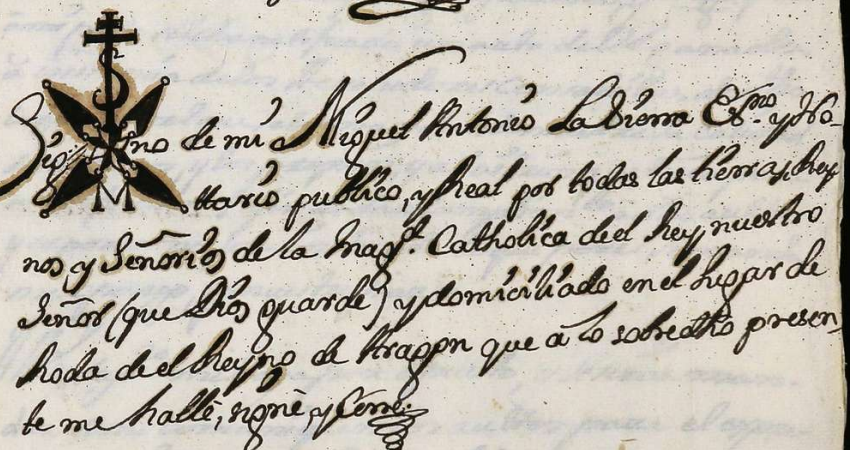 Sig no de mi Miguel Antonio La Sierra Ess.no y No-
ttario publico, y Real por todas las tierras, Rey
nos, y Señorios de la Mag.d Catholica de el Rey nuestro
Señor (que Dios guarde) y domiciliado en el Lugar de
Roda de el Reyno de Aragon que â lo sobredho presen-
te me hallè, signè, y Cerre.